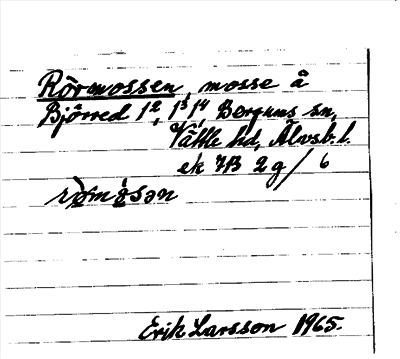 Rörmossen, mosse å
Björred 1², 1³, 1⁴, Bergums sn,
Vättle hd, Älvsb. l.
ek 7B 2g/6
Erik Larsson 1965.